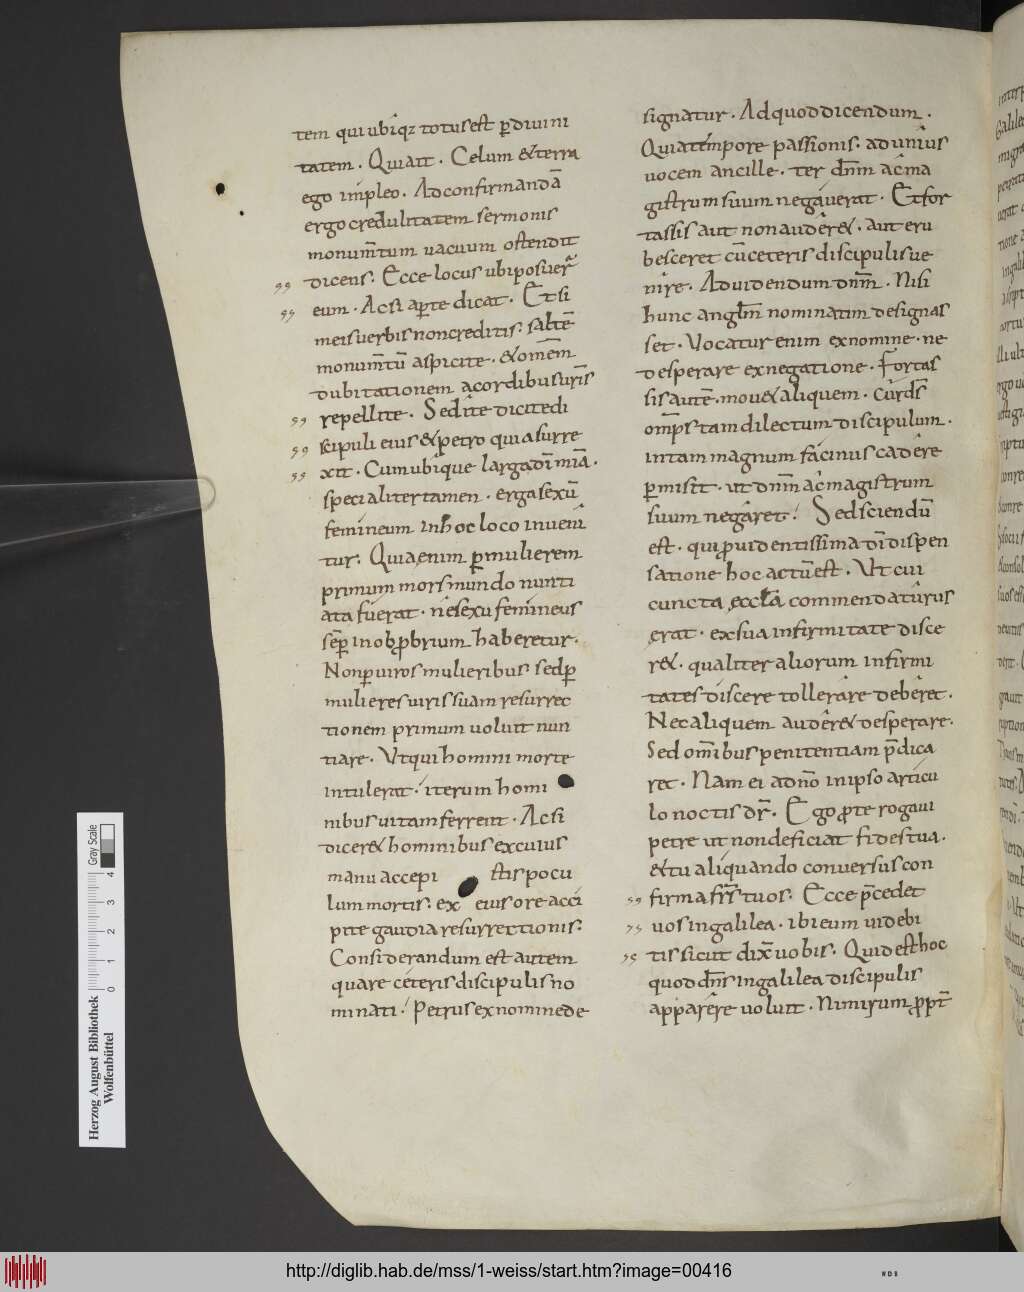 tem qui ubiq; totus est p̄ divini
tatem . Qui ait . Celum & terra
ego impleo . Ad confirmandā
ergo credulitatem sermonis
monum̄tum vacuum ostendit
dicens . Ecce locus ubi posuer̄
eum . Acsi aperte dicat . Et si
meis verbis non creditis . saltē
monum̄tū aspicite . & om̄em
dubitationem a cordibus ūris
repellite . Sed ite dicite di
scipuli eius & petro quia surre
xit . Cum ubique larga dī mīa .
specialiter tamen . erga sexū
femineum in hoc loco inveni
tur . Quia enim p̄ mulierem
primum mors mundo nunti
ata fuerat . ne sexu femineus
semp̄ in obprobrium haberetur .
Non p̄ viros mulieribus . sed p̄
mulieres viris suam resurrec
tionem primum voluit nun
tiare . Ut qui homini morte
intulerat . iterum homi
nibus vitam ferrent . Acsi
dicer& hominibus ex cuius
manu accepi stis pocu
lum mortis . ex eius ore acci
pite gaudia resurrectionis .
Considerandum est autem
quare ceteris discipulis no
minati . Petrus ex nomine de
signatur . Ad quod dicendum .
Quia tempore passionis . ad unius
vocem ancille . ter dn̄m ac ma
gistrum suum negaverat . Et for
tassis aut non auder& . aut eru
besceret cū ceteris discipulis ve
nire . Ad videndum dn̄m . Nisi
hunc anglm̄ nominatim designas
set . Vocatur enim ex nomine . ne
desperare ex negatione . Fortas
sis autē . mov& aliquem . cur ds̄
omp̄s tam dilectum discipulum .
in tam magnum facinus cadere
p̄misit . ut dn̄m ac magistrum
suum negaret . Sed sciendū
est . qui providentissima dī dispen
satione hoc actū est . Ut cui
cuncta ęccl̄a commendaturus
erat . ex sua infirmitate disce
r& . qualiter aliorum infirmi
tates discere tollerare deberet .
Nec aliquem auder& desperare .
Sed om̄ibus penitentiam p̄dica
ret . Nam ei ad nō in ipso articu
lo noctis dr̄ . Ego pro te rogavi
petre ut non deficiat fides tua .
& tu aliquando conversus con
firma frs̄ tuos . Ecce p̄cedet
vos in galilea . ibi eum videbi
tis sicut dix̄ vobis . Quid est hoc
quod dn̄s in galilea discipulis
apparere voluit . Nimirum propt̄
Herzog August Bibliothek
Wolfenbüttel
Gray Scale
0 1 2 3 4
http://diglib.hab.de/mss/1-weiss/start.htm?image=00416